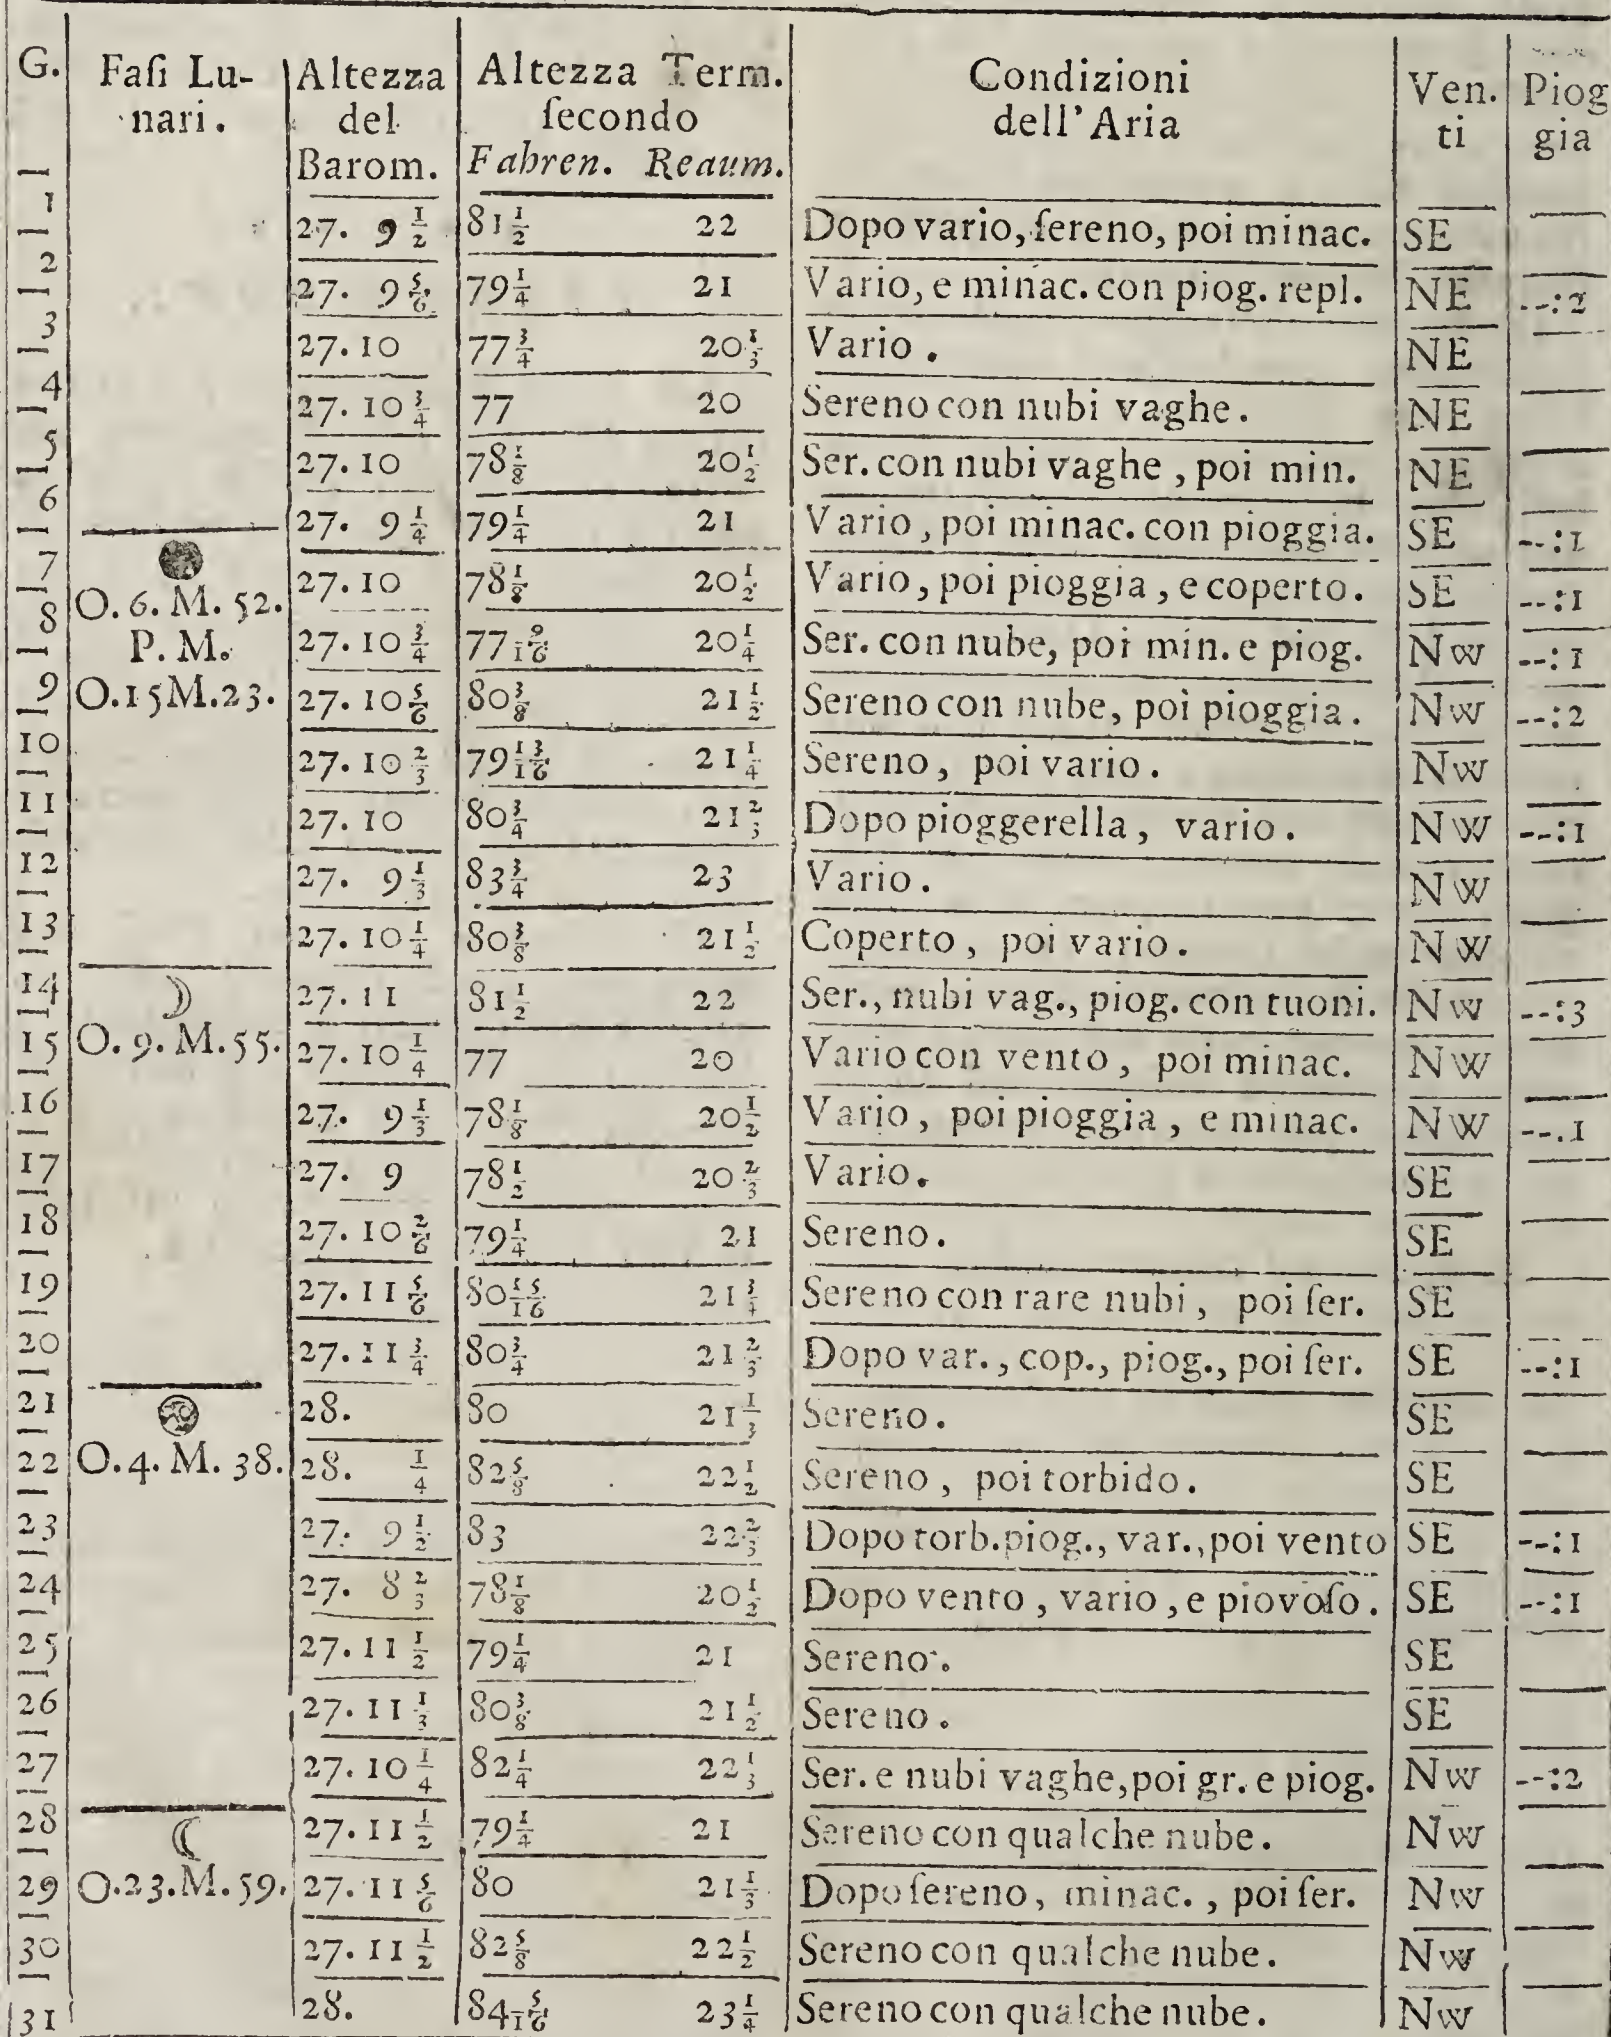 G. Faſi Lu- Altezza Altezza Term. Condizioni Ven. Piog
nari. del ſecondo dell'Aria ti gia
Barom. Fahren. Reaum.
1 27. 9 1/2 81 1/2 22 Dopo vario, ſereno, poi minac. SE
2 27. 9 5/6 79 1/4 21 Vario, e minac. con piog. repl. NE --:2
3 27. 10 77 3/4 20 1/3 Vario. NE
4 27. 10 3/4 77 20 Sereno con nubi vaghe. NE
5 27. 10 78 1/8 20 1/2 Ser. con nubi vaghe, poi min. NE
6 27. 9 1/4 79 1/4 21 Vario, poi minac. con pioggia. SE --:1
7 27. 10 78 1/8 20 1/2 Vario, poi pioggia, e coperto. SE --:1
8 O. 6. M. 52. P. M. 27. 10 3/4 77 9/16 20 1/4 Ser. con nube, poi min. e piog. Nw --:1
9 O.15M.23. 27. 10 5/6 80 3/8 21 1/2 Sereno con nube, poi pioggia. Nw --:2
10 27. 10 2/3 79 13/16 21 1/4 Sereno, poi vario. Nw
11 27. 10 80 3/4 21 2/3 Dopo pioggerella, vario. NW --:1
12 27. 9 1/3 83 3/4 23 Vario. NW
13 27. 10 1/4 80 3/8 21 1/2 Coperto, poi vario. NW
14 27. 11 81 1/2 22 Ser., nubi vag., piog. con tuoni. NW --:3
15 O. 9. M. 55. 27. 10 1/4 77 20 Vario con vento, poi minac. NW
16 27. 9 1/3 78 1/8 20 1/2 Vario, poi pioggia, e minac. NW --.1
17 27. 9 78 1/2 20 2/3 Vario. SE
18 27. 10 2/6 79 1/4 21 Sereno. SE
19 27. 11 5/6 80 15/16 21 3/4 Sereno con rare nubi, poi ſer. SE
20 27. 11 3/4 80 3/4 21 2/3 Dopo var., cop., piog., poi ſer. SE --:1
21 28. 80 21 1/3 Sereno. SE
22 O. 4. M. 38. 28. 1/4 82 5/8 22 1/2 Sereno, poi torbido. SE
23 27. 9 1/2 83 22 2/3 Dopo torb.piog., var., poi vento SE --:1
24 27. 8 2/3 78 1/8 20 1/2 Dopo vento, vario, e piovoſo. SE --:1
25 27. 11 1/2 79 1/4 21 Sereno. SE
26 27. 11 1/3 80 3/8 21 1/2 Sereno. SE
27 27. 10 1/4 82 1/4 22 1/3 Ser. e nubi vaghe, poi gr. e piog. Nw --:2
28 27. 11 1/2 79 1/4 21 Sereno con qualche nube. Nw
29 O.23.M.59. 27. 11 5/6 80 21 1/3 Dopo ſereno, minac., poi ſer. Nw
30 27. 11 1/2 82 5/8 22 1/2 Sereno con qualche nube. Nw
31 28. 84 5/16 23 1/4 Sereno con qualche nube. Nw